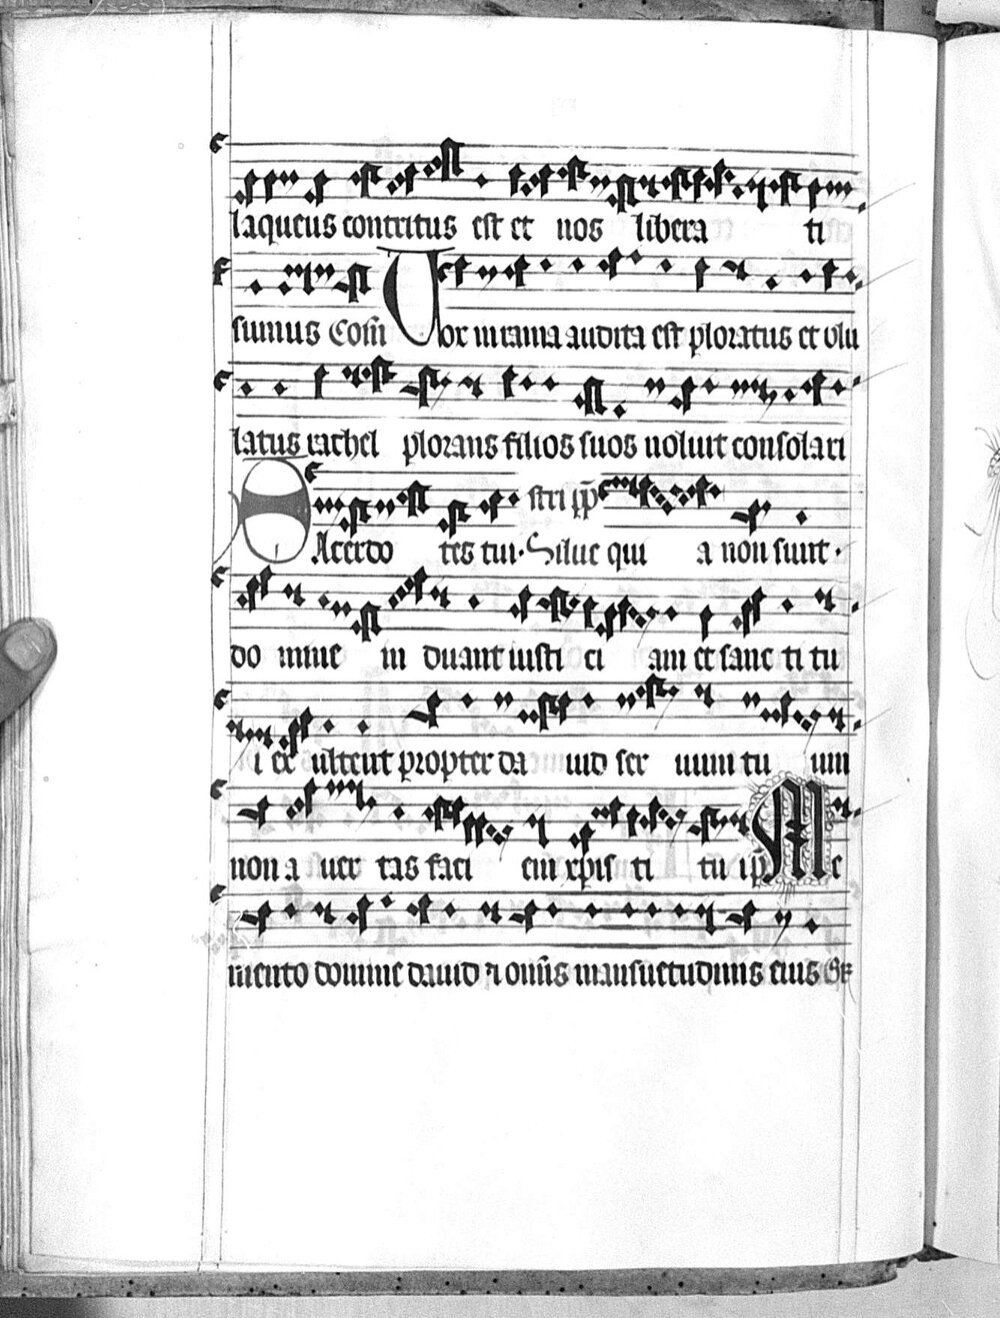 laqueus contritus est et nos libera ti
sumus Com̄ Vox in rama audita est ploratus et ulu
latus rachel plorans filios suos noluit consolari
Sacerdo tes tui. Silue qui a non sunt. stri pp̄
do mine in duant iusti ci am et sanc ti tu
i ex ultent propter da uid ser uum tu um
non a uer tas faci em xp̄is ti tu ip̄s Me
mento domine dauid ⁊ omīs mansuetudinis eius